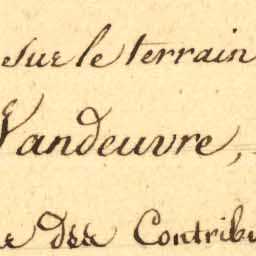 sur le terrain
Vandeuvre,
des Contribu